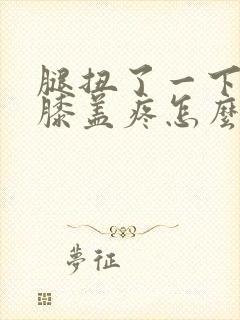 腿扭了一下
膝盖疼怎麼
夢征